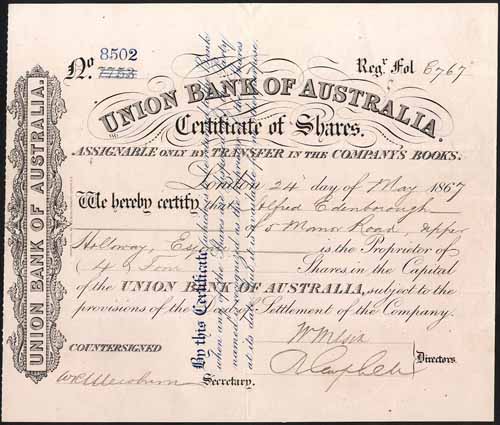 8502
No. 7753
Regr. Fol 6767
UNION BANK OF AUSTRALIA.
Certificate of Shares.
ASSIGNABLE ONLY BY TRANSFER IN THE COMPANY'S BOOKS.
London 24 day of May 1867
We hereby certify that Alfred Edenborough
of 5 Manor Road, Upper
Holloway, Esq is the Proprietor of
Shares, in the Capital
of the UNION BANK OF AUSTRALIA, subject to the
provisions of the Deed of Settlement of the Company.
COUNTERSIGNED
Directors.
Secretary.
UNION BANK OF AUSTRALIA.
By this Certificate